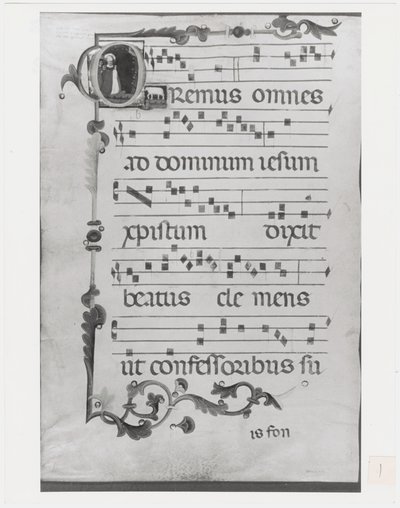 OREMUS omnes
ad dominum iesum
xpistum dixit
beatus cle mens
ut confessoribus su
is fon